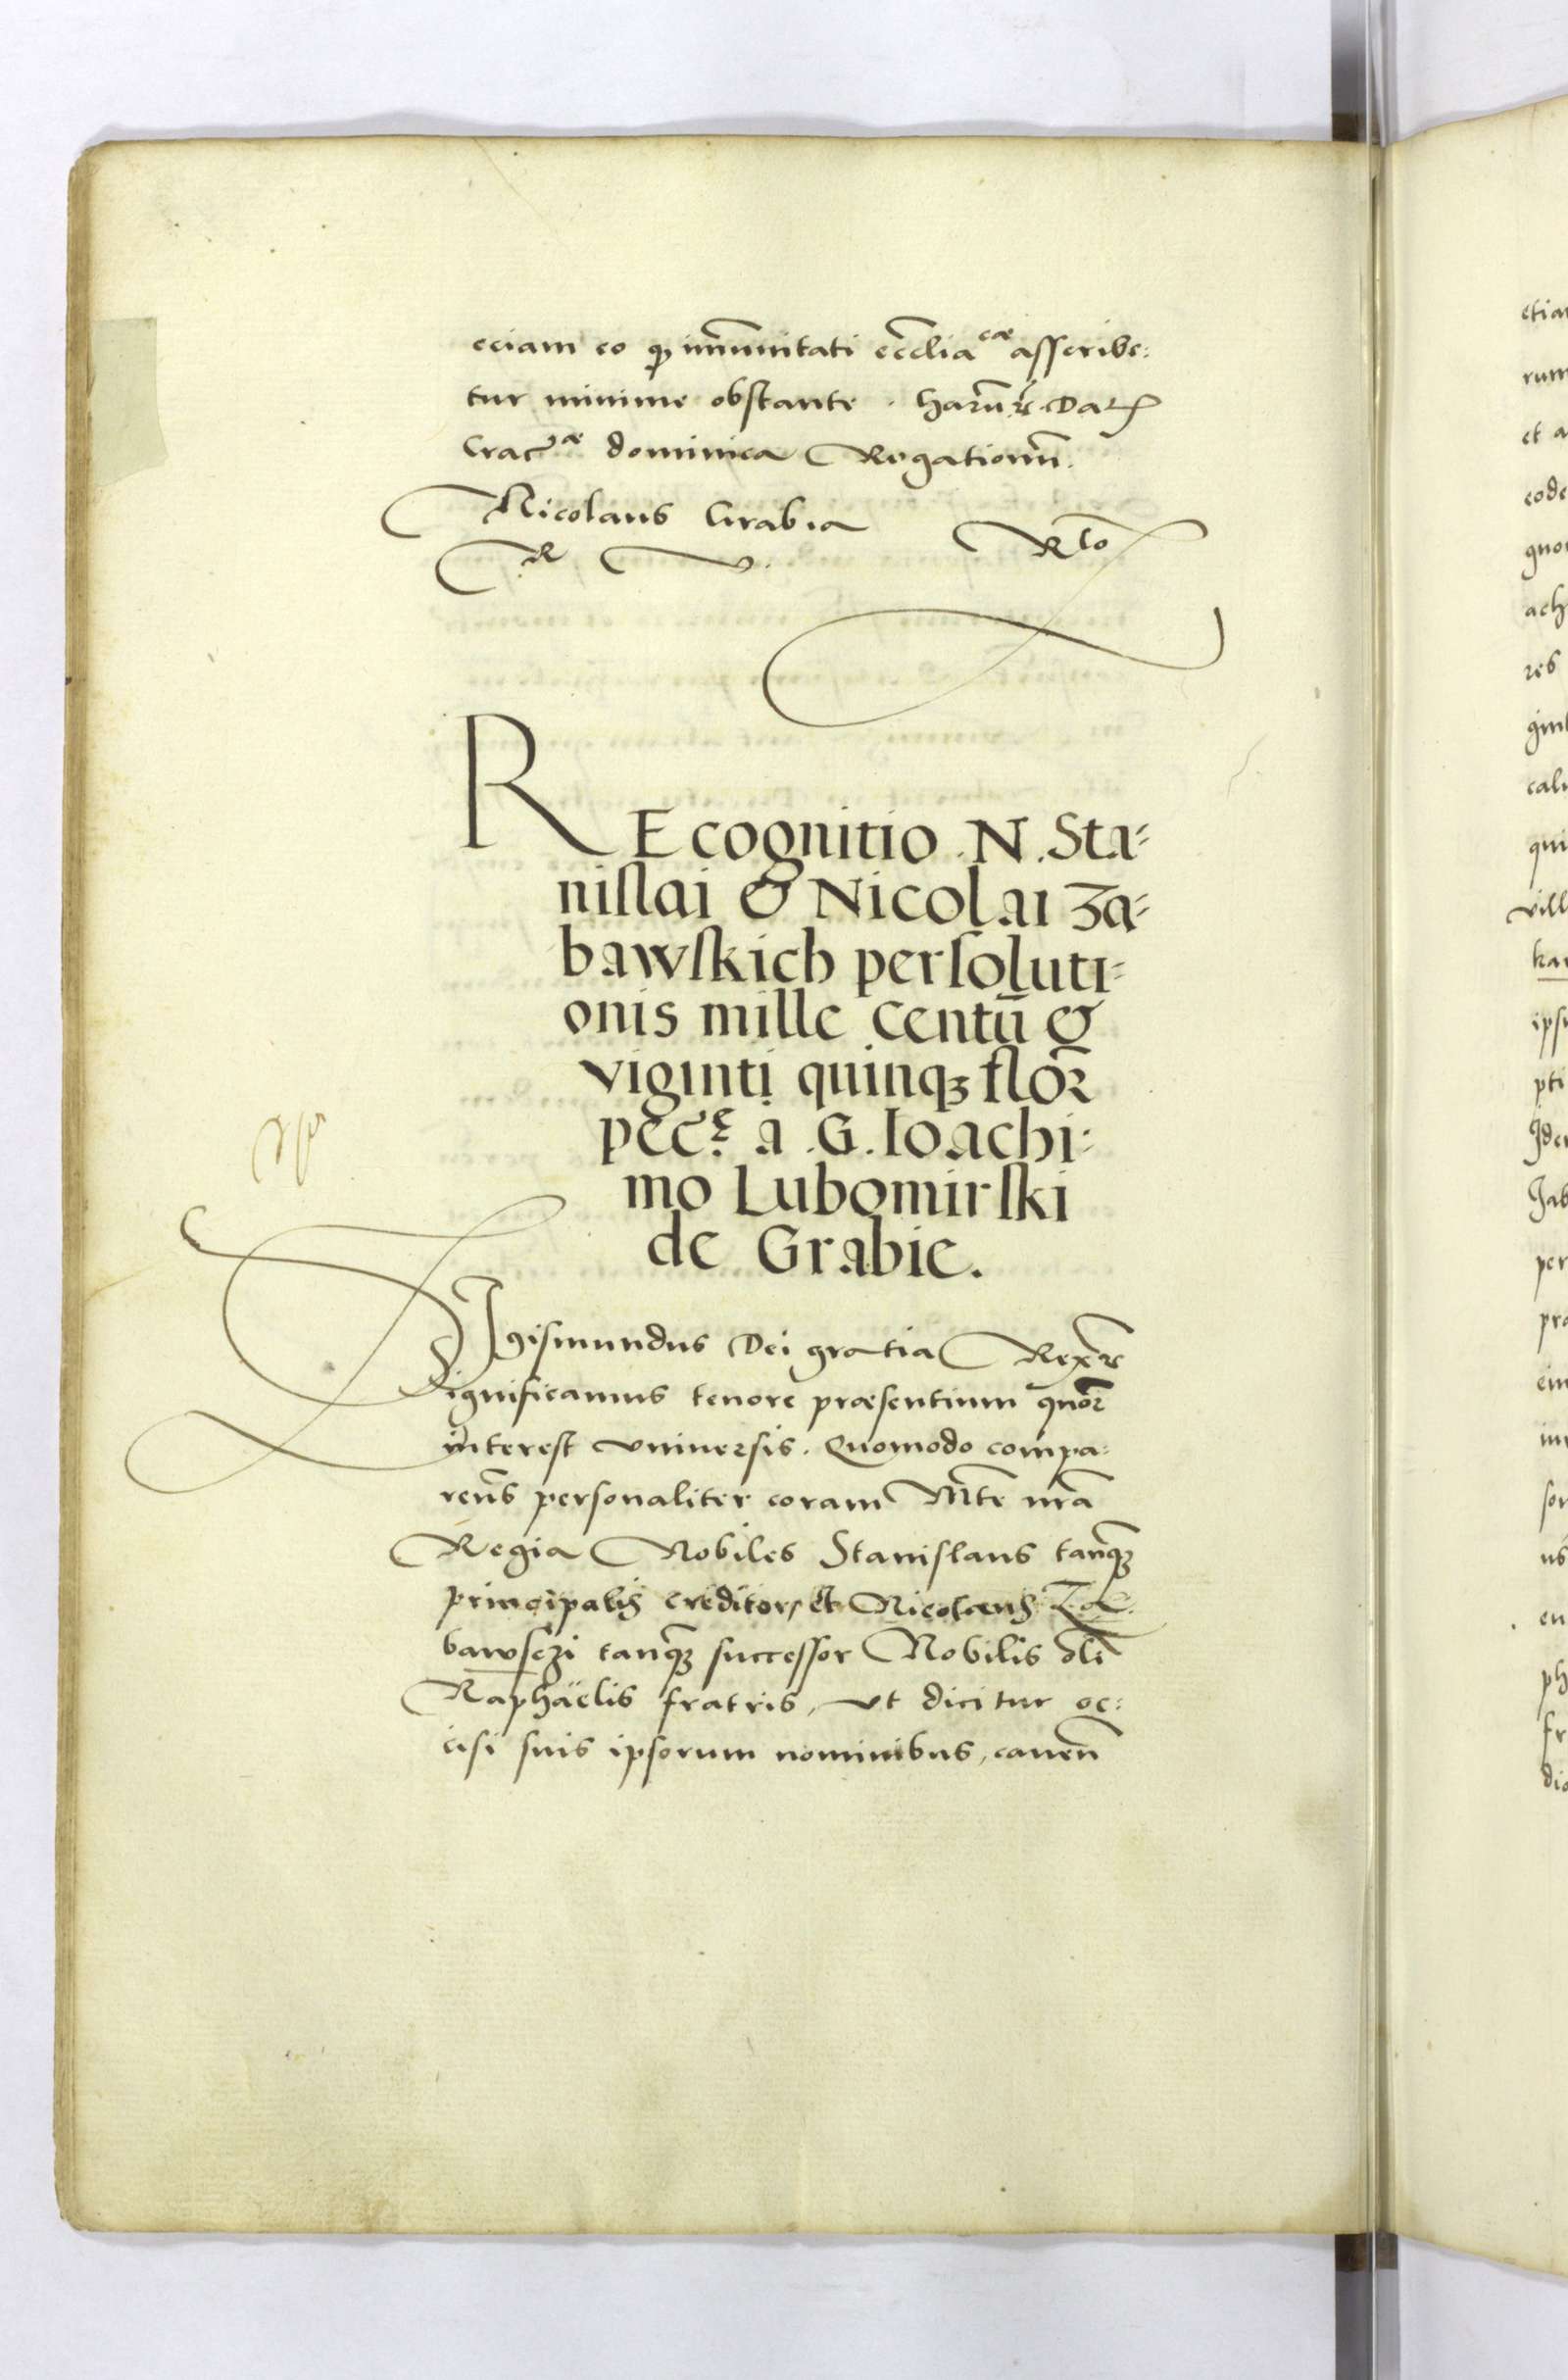 eciam eo qđ im̃unitati ecc̃lia cæ asseribe:
tur minime obstante. harũ &. Dat
Crac̃ æ dominica Rogationũ.
Nicolaus Grabia Rto
R V.
REcognitio .N. Sta=
nislai & Nicolai Za=
bawskich persoluti=
onis mille centũ &
viginti quinqȝ flor̃
pec̃ę a .G. Ioachi=
mo Lubomirski
de Grabie.
Sigismundus Dei gratia Rex &
Significamus tenore præsentium quor̃
interest vniuersis. Quomodo compa:
ren̄s personaliter coram Mte nr̃a
Regia Nobiles Stanislaus tanqȝ
principalis creditor, et Nicolaus Za
bawsczi tanqȝ successor Nobilis oli
Raphaëlis fratris, vt dicitur oc:
cisi suis ipsorum nominibus, cauen̄
etia
rum
et a
code
quo
ach
res
gint
calu
qui
vill
ka
ips
pti
Ide
Jab
per
pra
ein
im
sor
us
en
ph
fr
dic